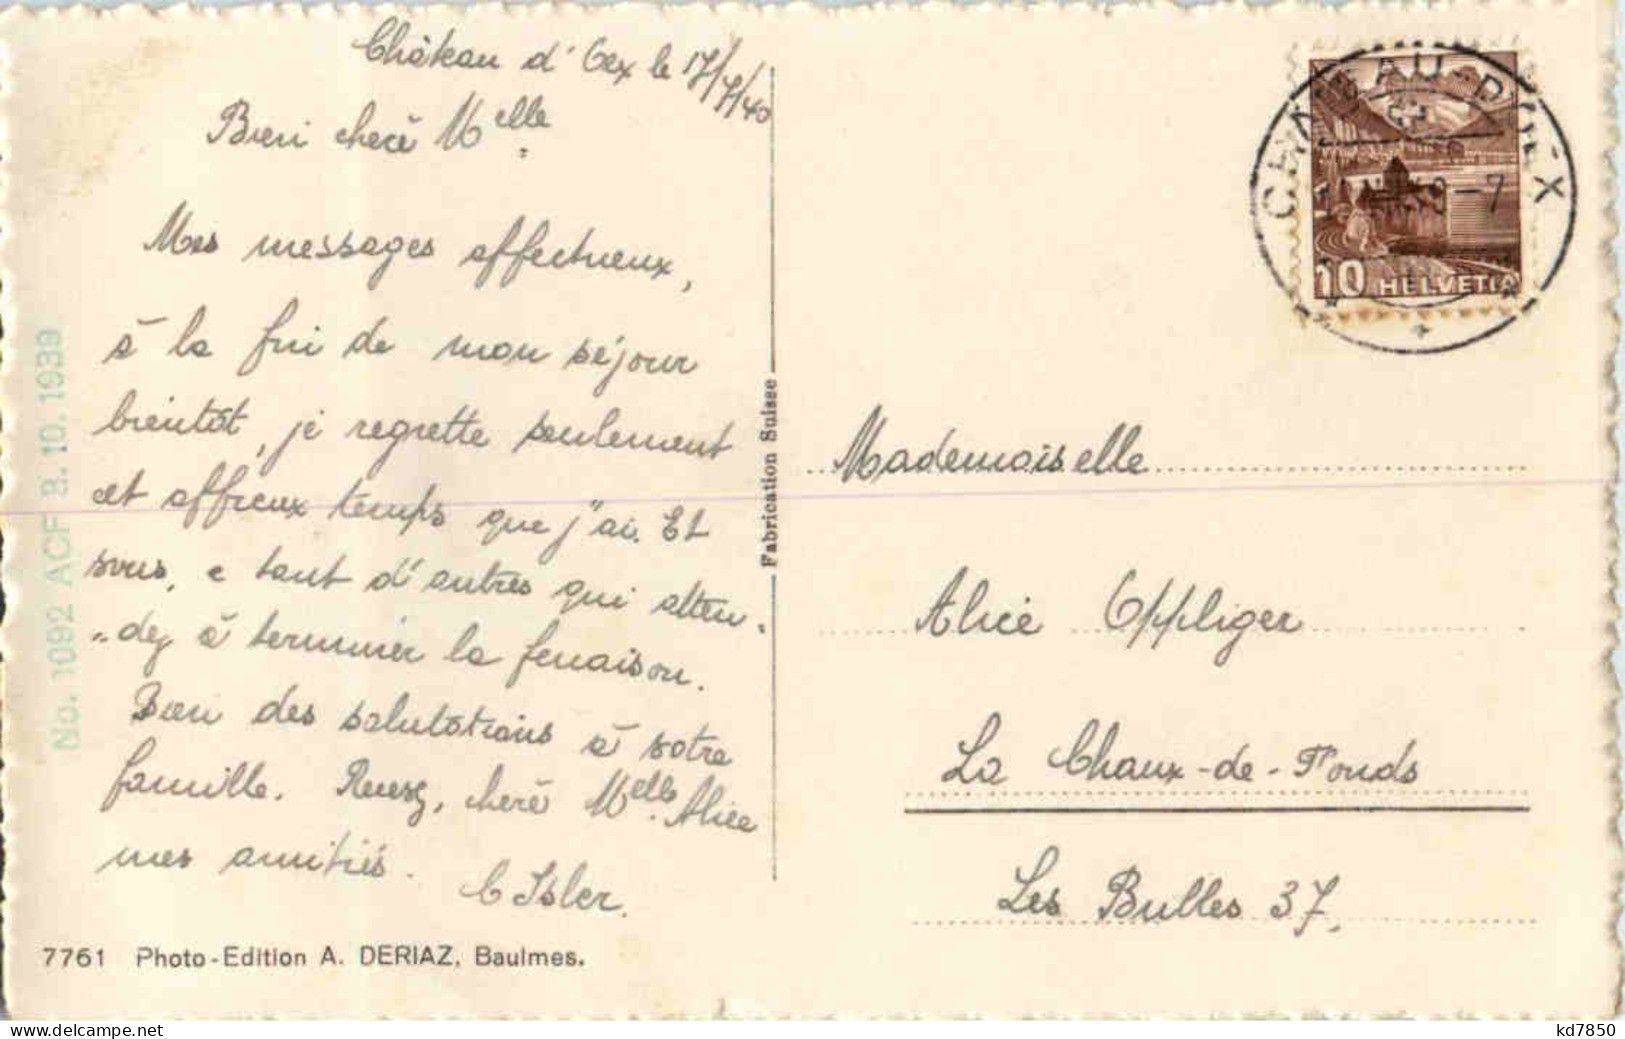 Château d'Oex le 17/7/40
Bien chère Melle
Mes messages affectueux,
à la fin de mon séjour
bientôt, je regrette seulement
cet affreux temps que j'ai. Et
vous, e tant d'autres qui atten-
-dez à terminer la fenaison.
Bien des salutations à votre
famille. Recevez, chère Melle Alice
mes amitiés.
C Isler.
No. 1092 ACF 3. 10. 1939
7761 Photo-Edition A. DERIAZ, Baulmes.
Fabrication Suisse
CHATEAU-D'OEX
-7
10 HELVETIA
Mademoiselle
Alice Oppliger
La Chaux-de-Fonds
Les Bulles 37.
kd7850